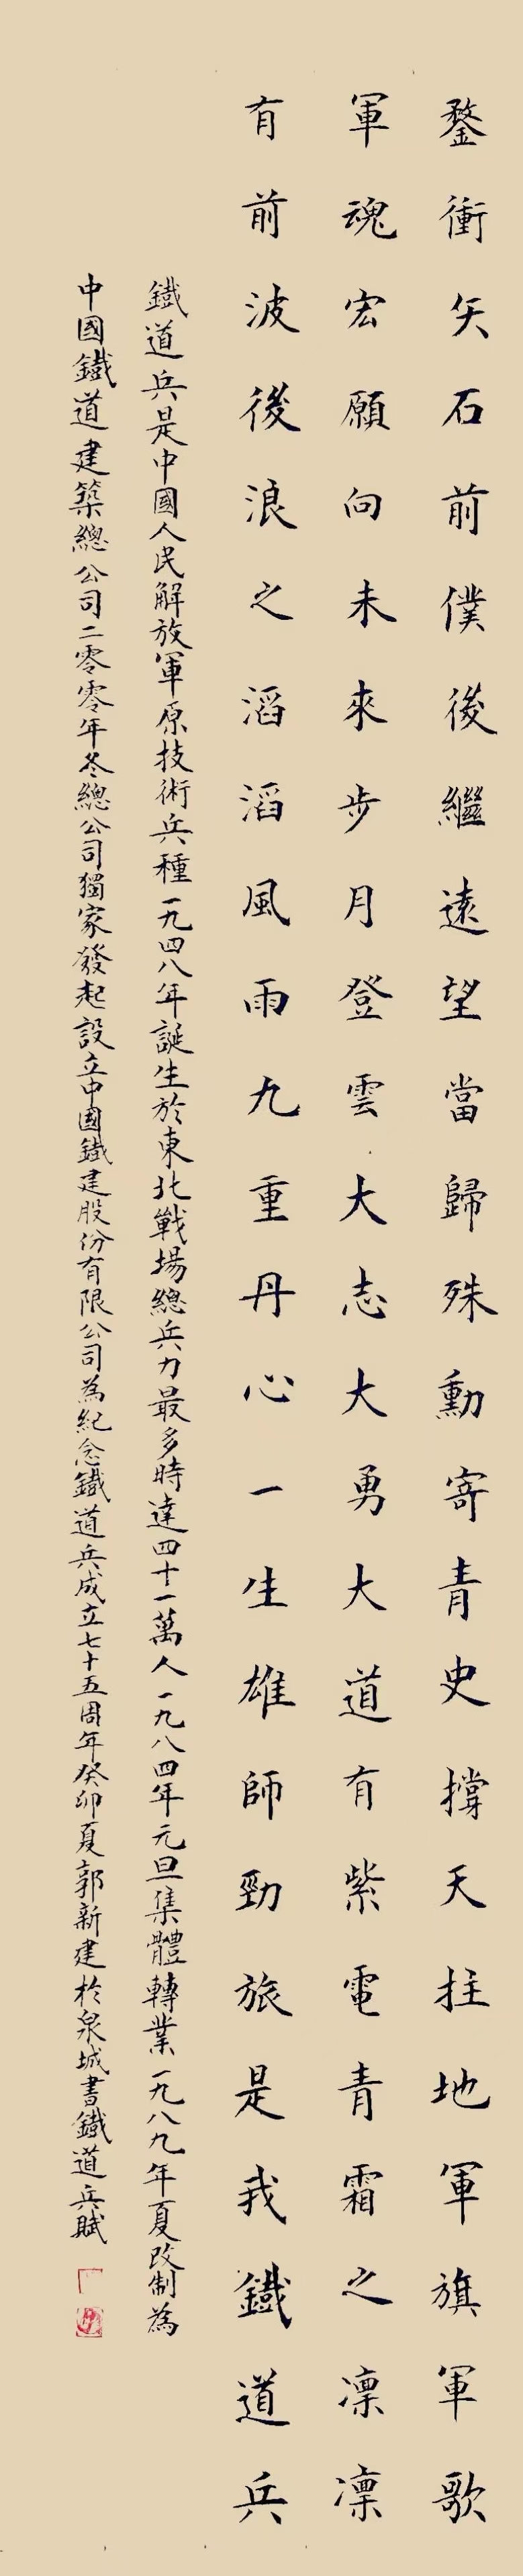 鍪衝矢石前僕後繼遠望當歸殊勳寄青史撐天拄地軍旗軍歌
軍魂宏願向未來步月登雲大志大勇大道有紫電青霜之凛凛
有前波後浪之滔滔風雨九重丹心一生雄師勁旅是我鐵道兵
鐵道兵是中國人民解放軍原技術兵種一九四八年誕生於東北戰場總兵力最多時達四十一萬人一九八四年元旦集體轉業一九八九年夏改制為
中國鐵道建築總公司二零零年冬總公司獨家發起設立中國鐵建股份有限公司為紀念鐵道兵成立七十五周年癸卯夏郭新建於泉城書鐵道兵賦